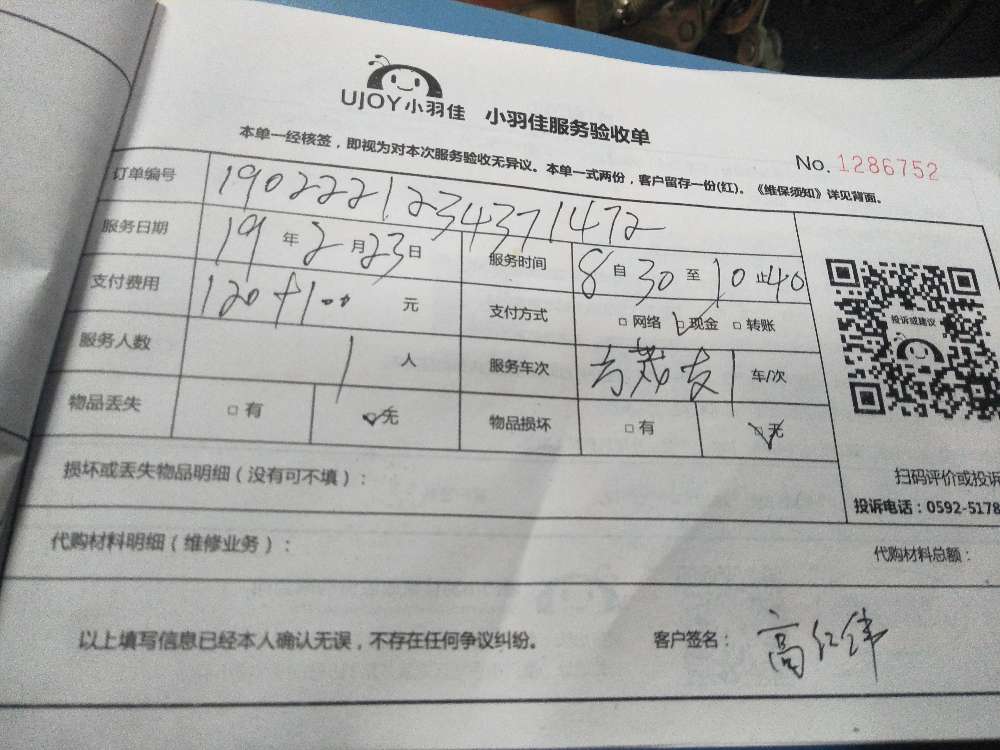 UJOY小羽佳 小羽佳服务验收单
本单一经核签，即视为对本次服务验收无异议。本单一式两份，客户留存一份(红)。《维保须知》详见背面。
No. 1286752
订单编号 190222123437 1472
服务日期 19年2月23日 服务时间 8自30至10止40
支付费用 120+100元 支付方式 □网络 ☑现金 □转账
服务人数 1人 服务车次 方茂友 1车/次
物品丢失 □有 ☑无 物品损坏 □有 ☑无
投诉或建议
扫码评价或投诉
投诉电话：0592-5178
损坏或丢失物品明细（没有可不填）：
代购材料明细（维修业务）：
代购材料总额：
以上填写信息已经本人确认无误，不存在任何争议纠纷。 客户签名：高红纬